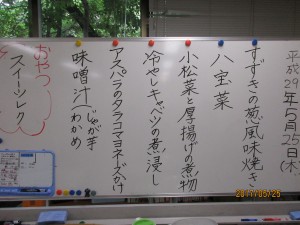 平成29年5月25日(木)
すずきの葱風味焼き
八宝菜
小松菜と厚揚げの煮物
冷やしキャベツの煮浸し
アスパラのタラコマヨネーズかけ
味噌汁(じゃが芋
わかめ
おやつ
スイーツレク
2017/05/25